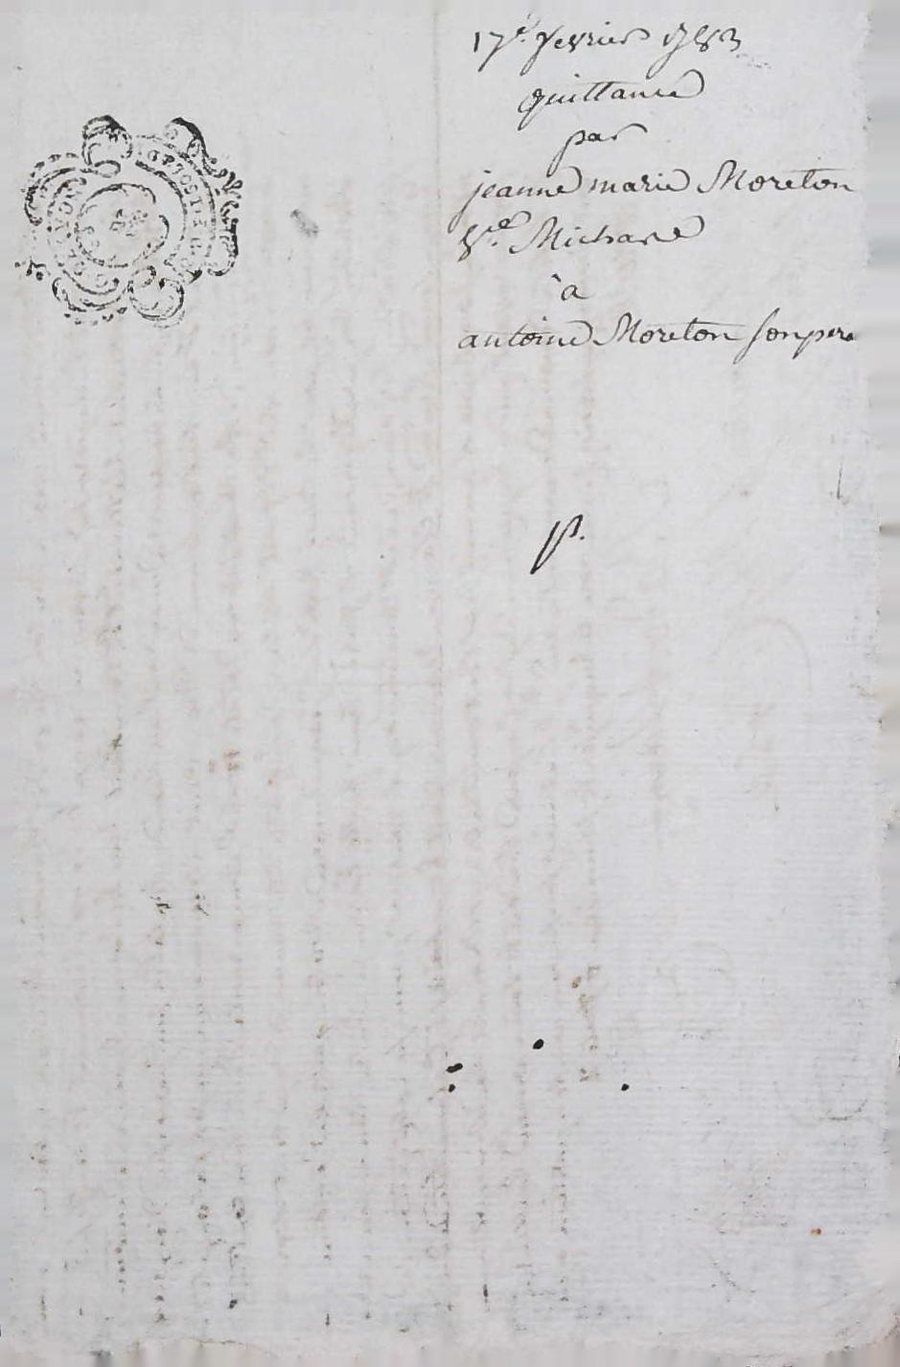 17e. fevrier 1783
quittance
par
jeanne marie Moreton
Ve.
à
antoine Moreton son pere
p.